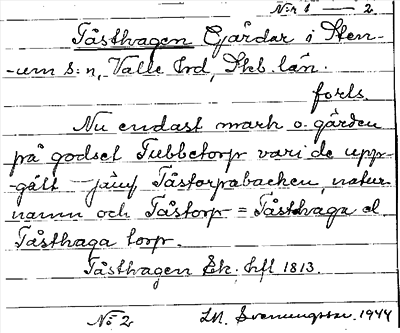 N:r 1 — 2.
Tåsthagen Gjärdar i Sten-
-um s:n, Valle hrd, Skb. län.
forts.
Nu endast mark o. gården
på godset Tubbetorp vari de upp-
-gått — jämf Tåstorpabacken, natur
namn och Tåstorp = Tåsthaga el.
Tåsthaga torp.
Tåsthagen Ek. Hfl 1813.
No 2
M. Svenungsson. 1944